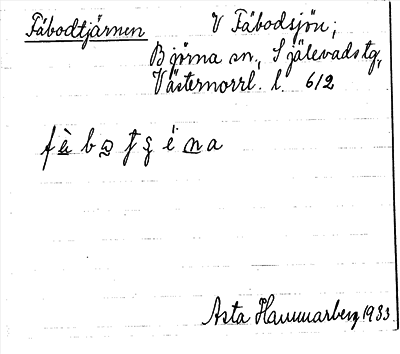 Fäbodtjärnen V Fäbodsjön;
Björna sn., Själevads tg,
Västernorrl. l. 6/2
Asta Hammarberg 1983.